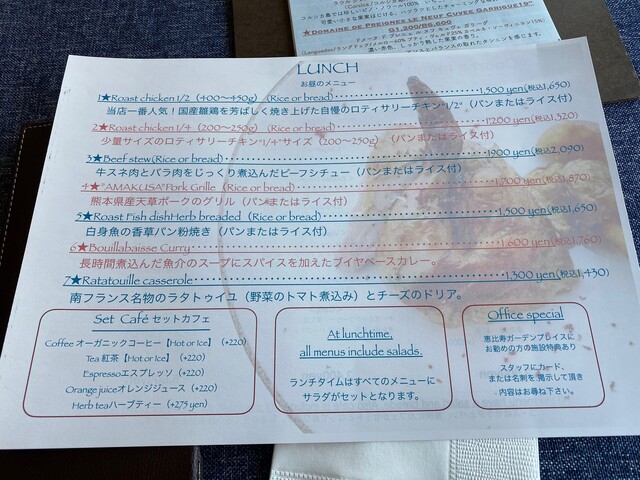 ★DOMAINE DE PREIGNES LE NEUF CUVEE GARRIGUE19"
G1,200/B6,600
LUNCH
お昼のメニュー
1★Roast chicken 1/2（400~450g）（Rice or bread） 1,500 yen(税込1,650)
当店一番人気！国産雛鶏を芳ばしく焼き上げた自慢のロティサリーチキン"1/2"（パンまたはライス付）
2★Roast chicken 1/4（200~250g）（Rice or bread） 1,200 yen(税込1,320)
少量サイズのロティサリーチキン"1/4"サイズ（200~250g）（パンまたはライス付）
3★Beef stew(Rice or bread) 1900 yen(税込2,090)
牛スネ肉とバラ肉をじっくり煮込んだビーフシチュー（パンまたはライス付）
4★"AMAKUSA"Pork Grille（Rice or bread） 1,700 yen(税込1,870)
熊本県産天草ポークのグリル（パンまたはライス付）
5★Roast Fish dishHerb breaded（Rice or bread） 1,500 yen(税込1,650)
白身魚の香草パン粉焼き（パンまたはライス付）
6★Bouillabaisse Curry 1,600 yen(税込1,760)
長時間煮込んだ魚介のスープにスパイスを加えたブイヤベースカレー。
7★Ratatouille casserole 1,300 yen(税込1,430)
南フランス名物のラタトゥイユ（野菜のトマト煮込み）とチーズのドリア。
Set Café セットカフェ
Coffee オーガニックコーヒー【Hot or Ice】（+220）
Tea 紅茶【Hot or Ice】（+220）
Espressoエスプレッソ（+220）
Orange juiceオレンジジュース（+220）
Herb teaハーブティー（+275 yen）
At lunchtime,
all menus include salads.
ランチタイムはすべてのメニューに
サラダがセットとなります。
Office special
恵比寿ガーデンプレイスに
お勤めの方の施設特典あり
スタッフにカード、
または名刺を掲示して頂き
内容はお尋ね下さい。